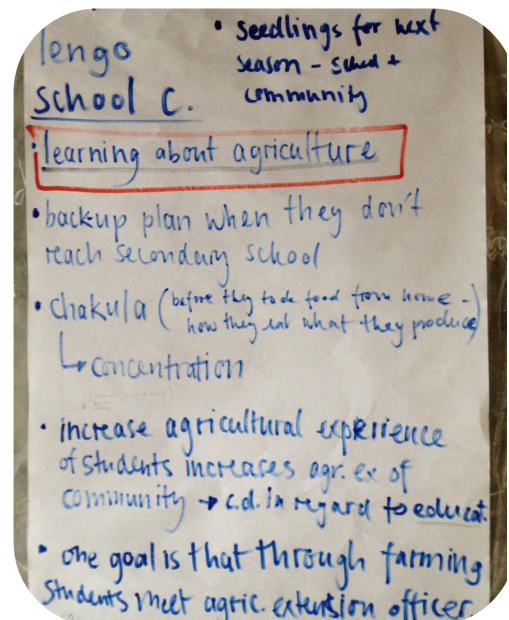 lengo
school C.
• seedlings for next
season - school +
community
• learning about agriculture
• backup plan when they don't
reach secondary school
• chakula (before they took food from home -
now they eat what they produce)
↳ concentration
• increase agricultural experience
of students increases agr. ex of
community → c.d. in regard to educat.
• one goal is that through farming
students meet agric. extension officer